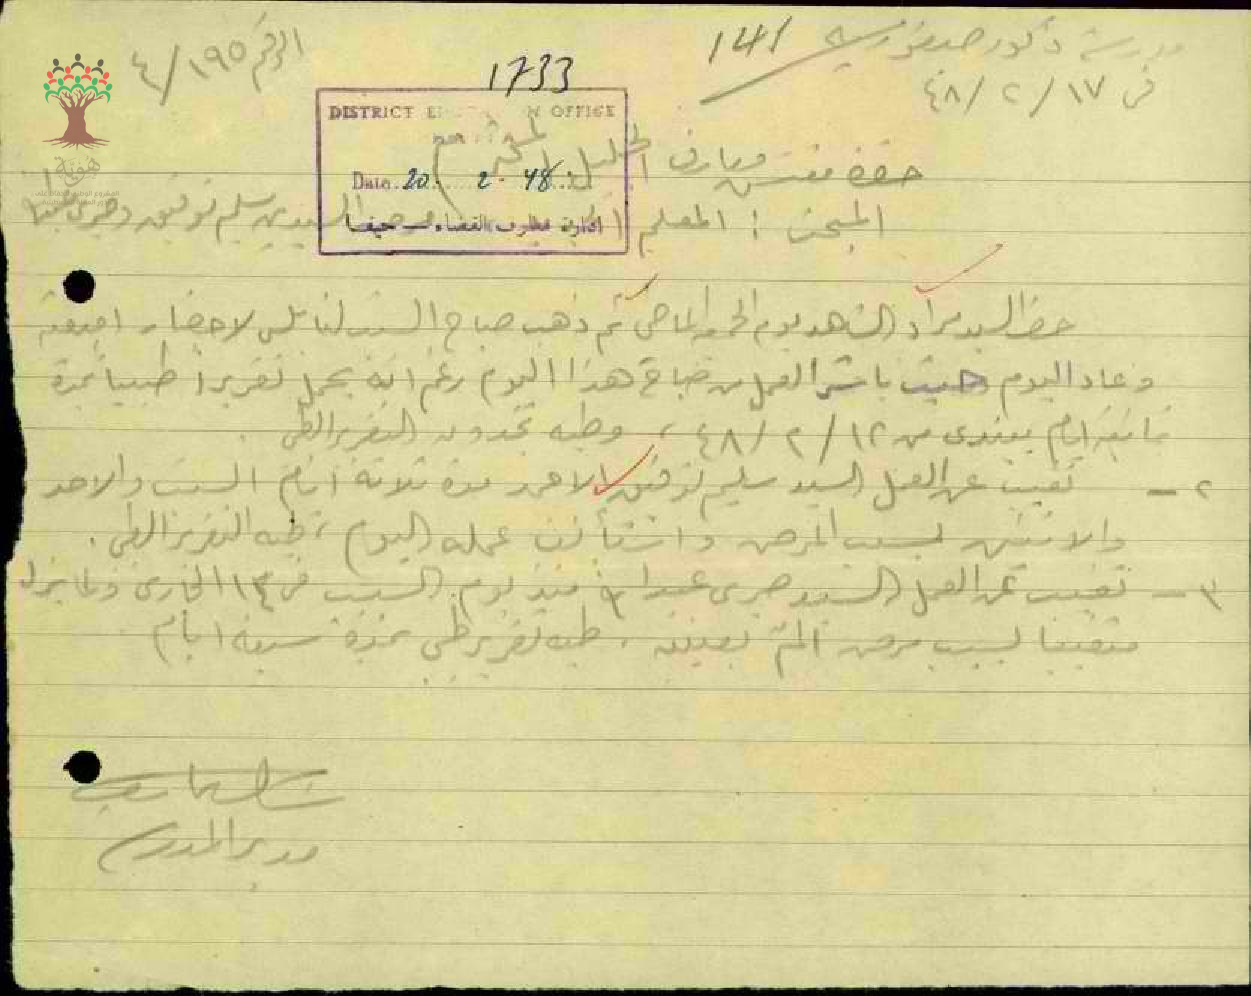 مدرسة ذكور صفورية
141
الرقم ٤/١٩٥
في ١٧/٢/٤٨
1733
DISTRICT OFFICE
Date. 20. 2. 48
حضرة مفتش معارف الجليل المحترم
هوية
المبحث : المعلم السيدين سليم توفيق وصبري
حضر السيد مراد الشاهد يوم الماضي ثم ذهب صباح السبت لنابلس لاحضار امتعته
وعاد اليوم حيث باشر العمل من صباح هذا اليوم رغم انه يحمل تقريراً طبياً لمدة
ثمانية ايام يبتدئ من ١٢/٢/٤٨ ، وطيه تجدون التقرير الطبي .
٢ـ تغيب عن العمل السيد سليم توفيق الاحمد مدة ثلاثة ايام السبت والاحد
والاثنين بسبب المرض واستأنف عمله اليوم ، طيه التقرير الطبي .
٣ـ تغيب عن العمل السيد صبري منذ يوم السبت في ١٤ الجاري ولما يزل
متغيبا بسبب مرض الم بعينيه ، طيه تقرير طبي لمدة سبعة ايام .
مدير المدرسة